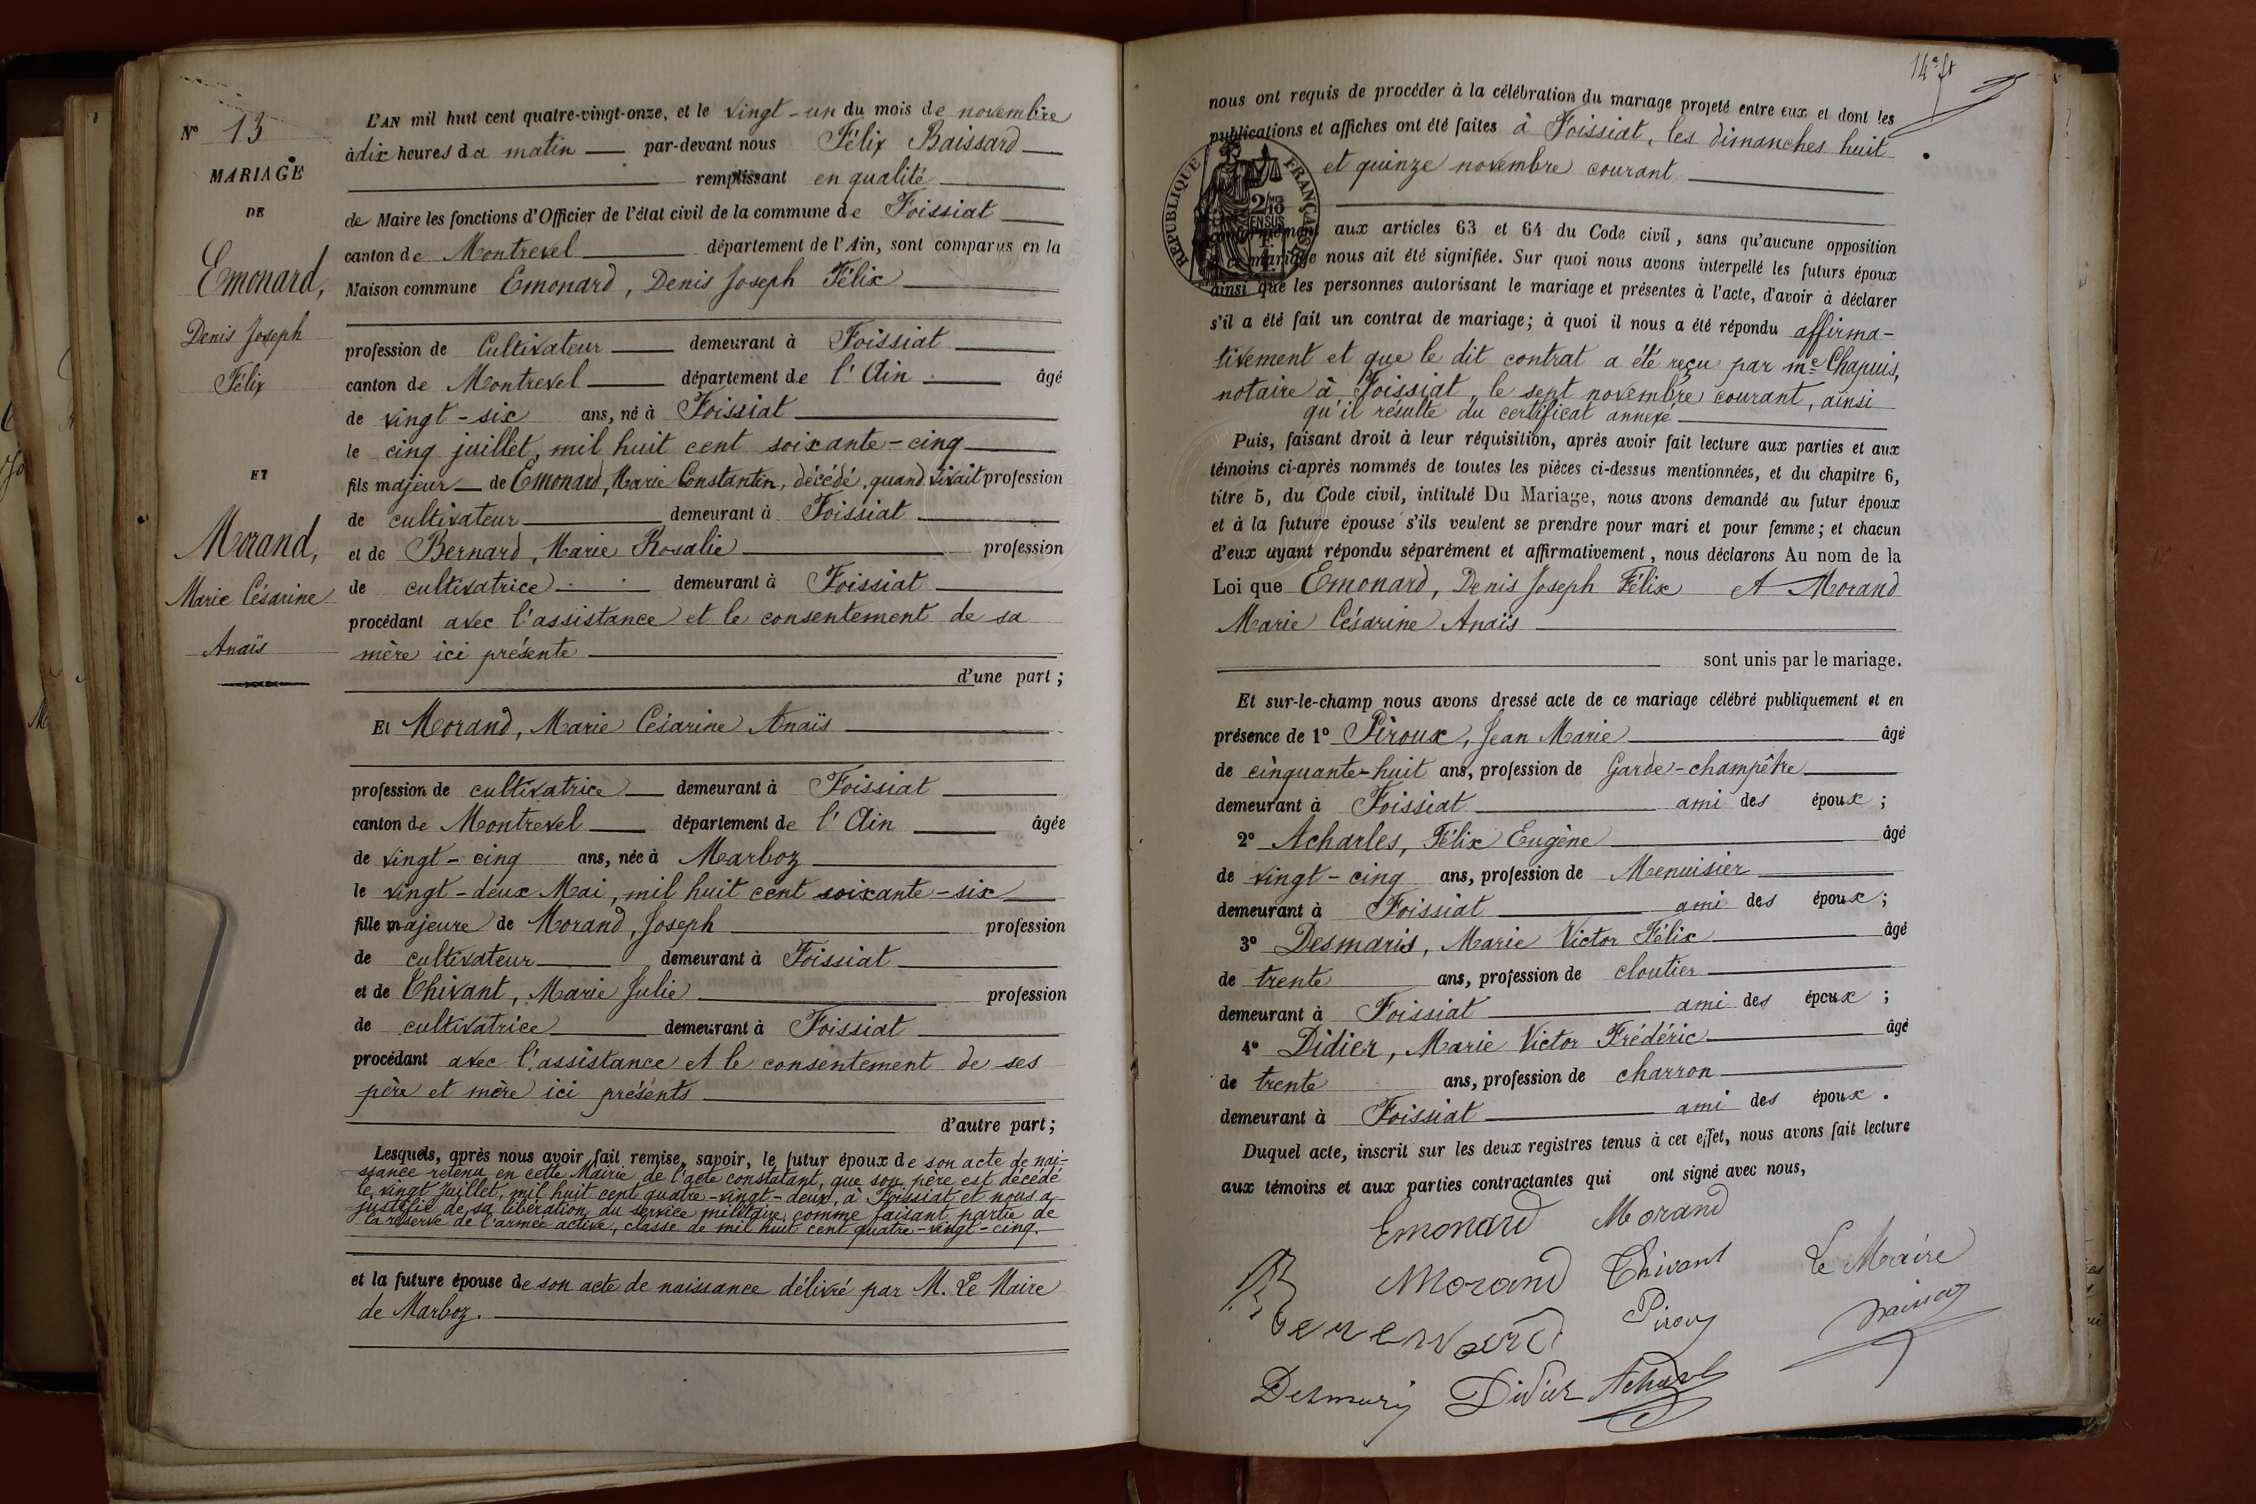 N° 13
MARIAGE
DE
Emonard,
Denis Joseph
Félix
ET
Morand,
Marie Césarine
Anaïs
L'AN mil huit cent quatre-vingt-onze, et le vingt-un du mois de novembre
à dix heures du matin par-devant nous Félix Baissard
remplissant en qualité
de Maire les fonctions d'Officier de l'état civil de la commune de Foissiat
canton de Montrevel département de l'Ain, sont comparus en la
Maison commune Emonard, Denis Joseph Félix
profession de Cultivateur demeurant à Foissiat
canton de Montrevel département de l'Ain âgé
de vingt-six ans, né à Foissiat
le cinq juillet, mil huit cent soixante-cinq
fils majeur de Emonard, Marie Constantin, décédé, quand vivait profession
de cultivateur demeurant à Foissiat
et de Bernard, Marie Rosalie profession
de cultivatrice demeurant à Foissiat
procédant avec l'assistance et le consentement de sa
mère ici présente
d'une part;
Et Morand, Marie Césarine Anaïs
profession de cultivatrice demeurant à Foissiat
canton de Montrevel département de l'Ain âgée
de vingt-cinq ans, née à Marboz
le vingt-deux Mai, mil huit cent soixante-six
fille majeure de Morand, Joseph profession
de cultivateur demeurant à Foissiat
et de Thivant, Marie Julie profession
de cultivatrice demeurant à Foissiat
procédant avec l'assistance et le consentement de ses
père et mère ici présents
d'autre part;
Lesquels, après nous avoir fait remise, savoir, le futur époux de son acte de nai-
ssance retenu en cette Mairie de l'acte constatant, que son père est décédé
le vingt juillet, mil huit cent quatre-vingt-deux, à Foissiat et nous a
justifié de sa libération du service militaire comme faisant partie de
la réserve de l'armée active, classe de mil huit cent quatre-vingt-cinq.
et la future épouse de son acte de naissance délivré par M. Le Maire
de Marboz.
14e ft
nous ont requis de procéder à la célébration du mariage projeté entre eux et dont les
publications et affiches ont été faites à Foissiat, les dimanches huit
et quinze novembre courant
RÉPUBLIQUE FRANÇAISE
2/10 EN SUS
conformément aux articles 63 et 64 du Code civil, sans qu'aucune opposition
à ce mariage nous ait été signifiée. Sur quoi nous avons interpellé les futurs époux
ainsi que les personnes autorisant le mariage et présentes à l'acte, d'avoir à déclarer
s'il a été fait un contrat de mariage; à quoi il nous a été répondu affirma-
tivement et que le dit contrat a été reçu par me Chapuis,
notaire à Foissiat, le sept novembre courant, ainsi
qu'il résulte du certificat annexé
Puis, faisant droit à leur réquisition, après avoir fait lecture aux parties et aux
témoins ci-après nommés de toutes les pièces ci-dessus mentionnées, et du chapitre 6,
titre 5, du Code civil, intitulé Du Mariage, nous avons demandé au futur époux
et à la future épouse s'ils veulent se prendre pour mari et pour femme; et chacun
d'eux ayant répondu séparément et affirmativement, nous déclarons Au nom de la
Loi que Emonard, Denis Joseph Félix et Morand
Marie Césarine Anaïs
sont unis par le mariage.
Et sur-le-champ nous avons dressé acte de ce mariage célébré publiquement et en
présence de 1° Piroux, Jean Marie âgé
de cinquante-huit ans, profession de Garde-champêtre
demeurant à Foissiat ami des époux;
2° Acharles, Félix Eugène âgé
de vingt-cinq ans, profession de Menuisier
demeurant à Foissiat ami des époux;
3° Desmaris, Marie Victor Félix âgé
de trente ans, profession de cloutier
demeurant à Foissiat ami des époux;
4° Didier, Marie Victor Frédéric âgé
de trente ans, profession de charron
demeurant à Foissiat ami des époux.
Duquel acte, inscrit sur les deux registres tenus à cet effet, nous avons fait lecture
aux témoins et aux parties contractantes qui ont signé avec nous,
Emonard Morand
Morand Thivant Le Maire
Piroux
Didier